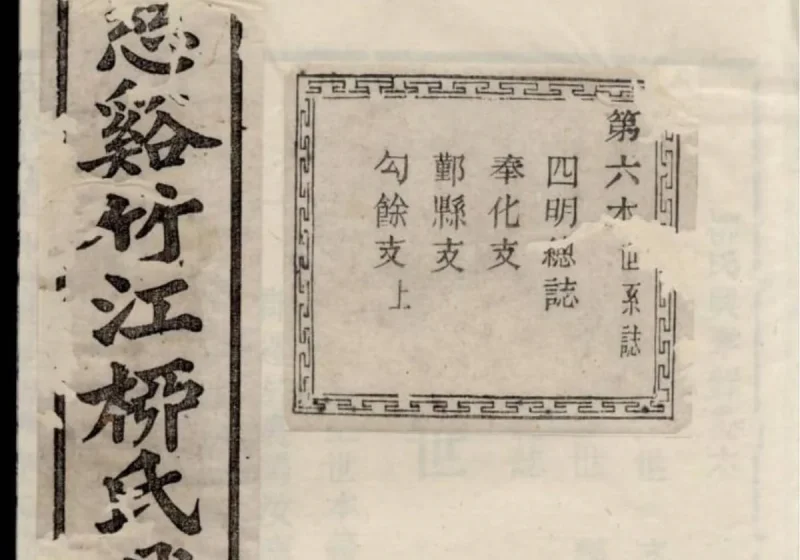 第六本世系誌
四明總誌
奉化支
鄞縣支
勾餘支上
慈谿竹江柳氏